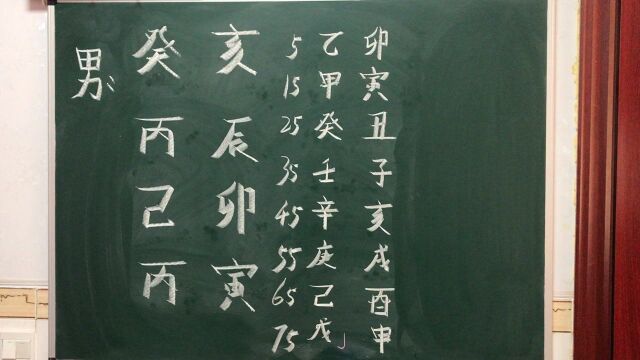 男:
癸亥
丙辰
己卯
丙寅
5 乙卯
15 甲寅
25 癸丑
35 壬子
45 辛亥
55 庚戌
65 己酉
75 戊申